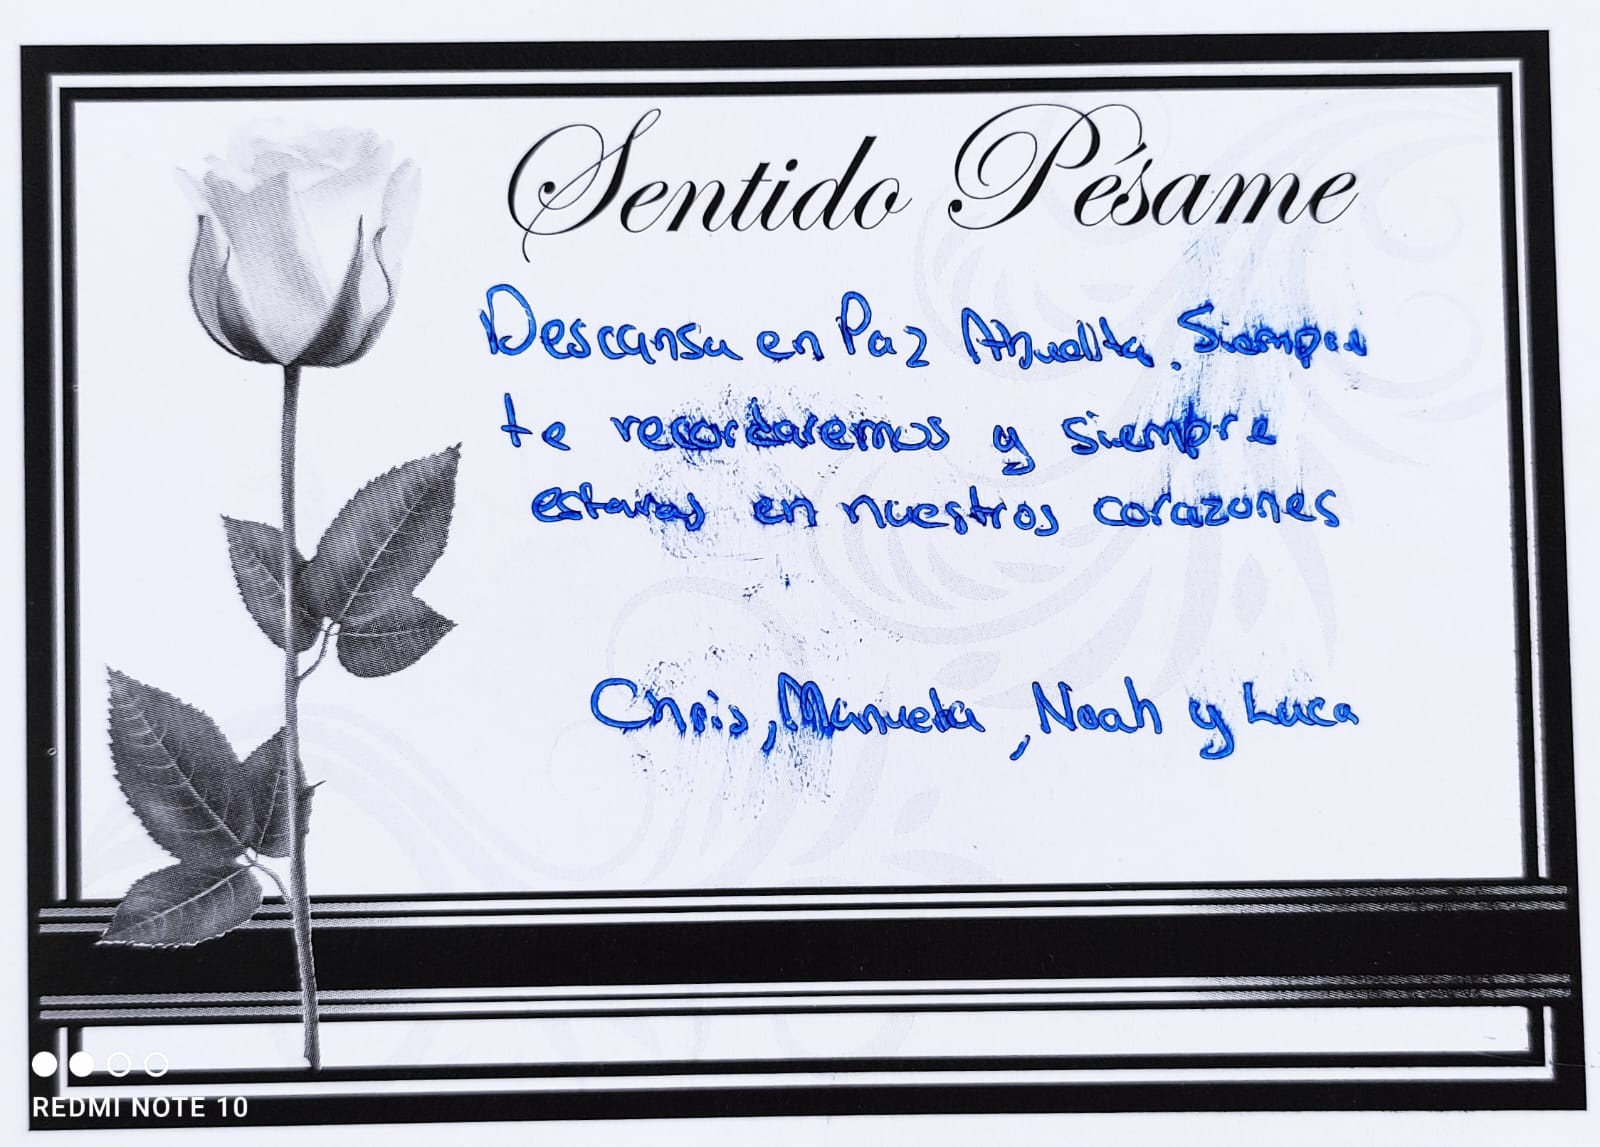 Sentido Pésame
Descansa en Paz Abuelita. Siempre
te recordaremos y siempre
estaras en nuestros corazones
Chris, Manuela, Noah y Luca
REDMI NOTE 10